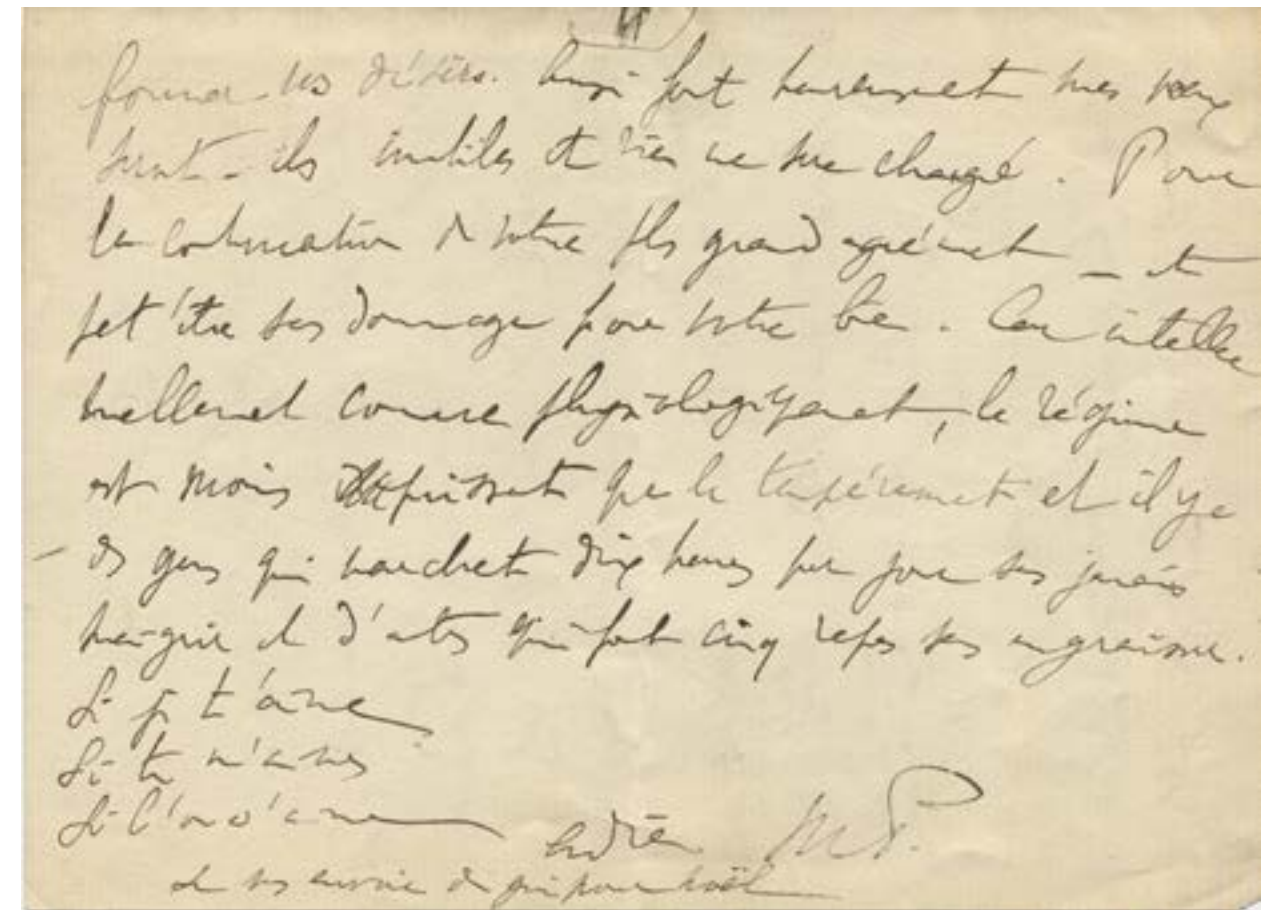 former des désirs. Aussi fort heureusement mes vœux
sont-ils inutiles et rien ne sera changé. Pour
la continuation de votre plus grand agrément _ et
peut'être sans dommage pour votre bien. Car intellec
tuellement comme physiologiquement, le régime
est moins puissant que le tempérament et il y a
des gens qui marchent dix heures par jour sans jamais
maigrir et d'autres qui font cinq repas sans engraisser.
Si je t'aime
Si tu m'aimes
Si l'on s'aime
M. P.